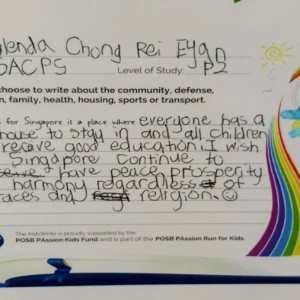 lenda Chong Rei Eyan
DACPS Level of Study: P2
choose to write about the community, defense,
n, family, health, housing, sports or transport.
for Singapore is a place where everyone has a
house to stay in and all children
receive good education. I wish
Singapore Continue to
have peace prosperity
harmony regardless of
races and religion. ☺
The KidsWrite is proudly supported by the
POSB PAssion Kids Fund and is part of the POSB PAssion Run for Kids